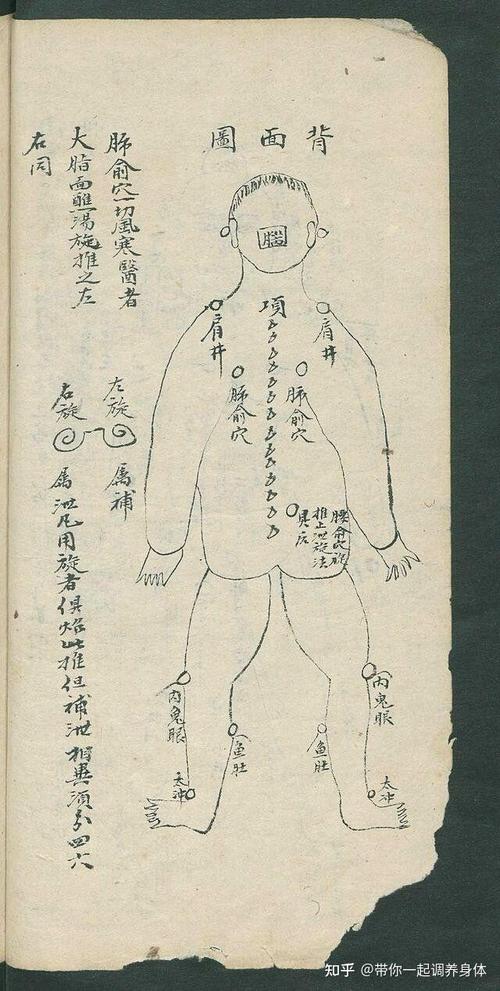 背面圖
腦
項
肩井
肩井
肺俞穴
肺俞穴
腰俞穴旋
推上泄旋法
具后
内鬼眼
内鬼眼
鱼肚
鱼肚
太冲
太冲
肺俞穴一切風寒醫者
大脂面醮湯旋推之左
右同
左旋
属補
右旋
属泄凡用旋者俱炤此推但補泄相異須分四六
知乎 @带你一起调养身体